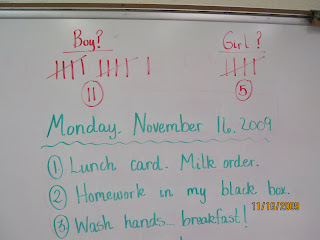 Boy? Girl?
11 5
Monday, November 16, 2009
1 Lunch card. Milk order.
2 Homework in my black box.
11/16/2009
3 Wash hands... breakfast!